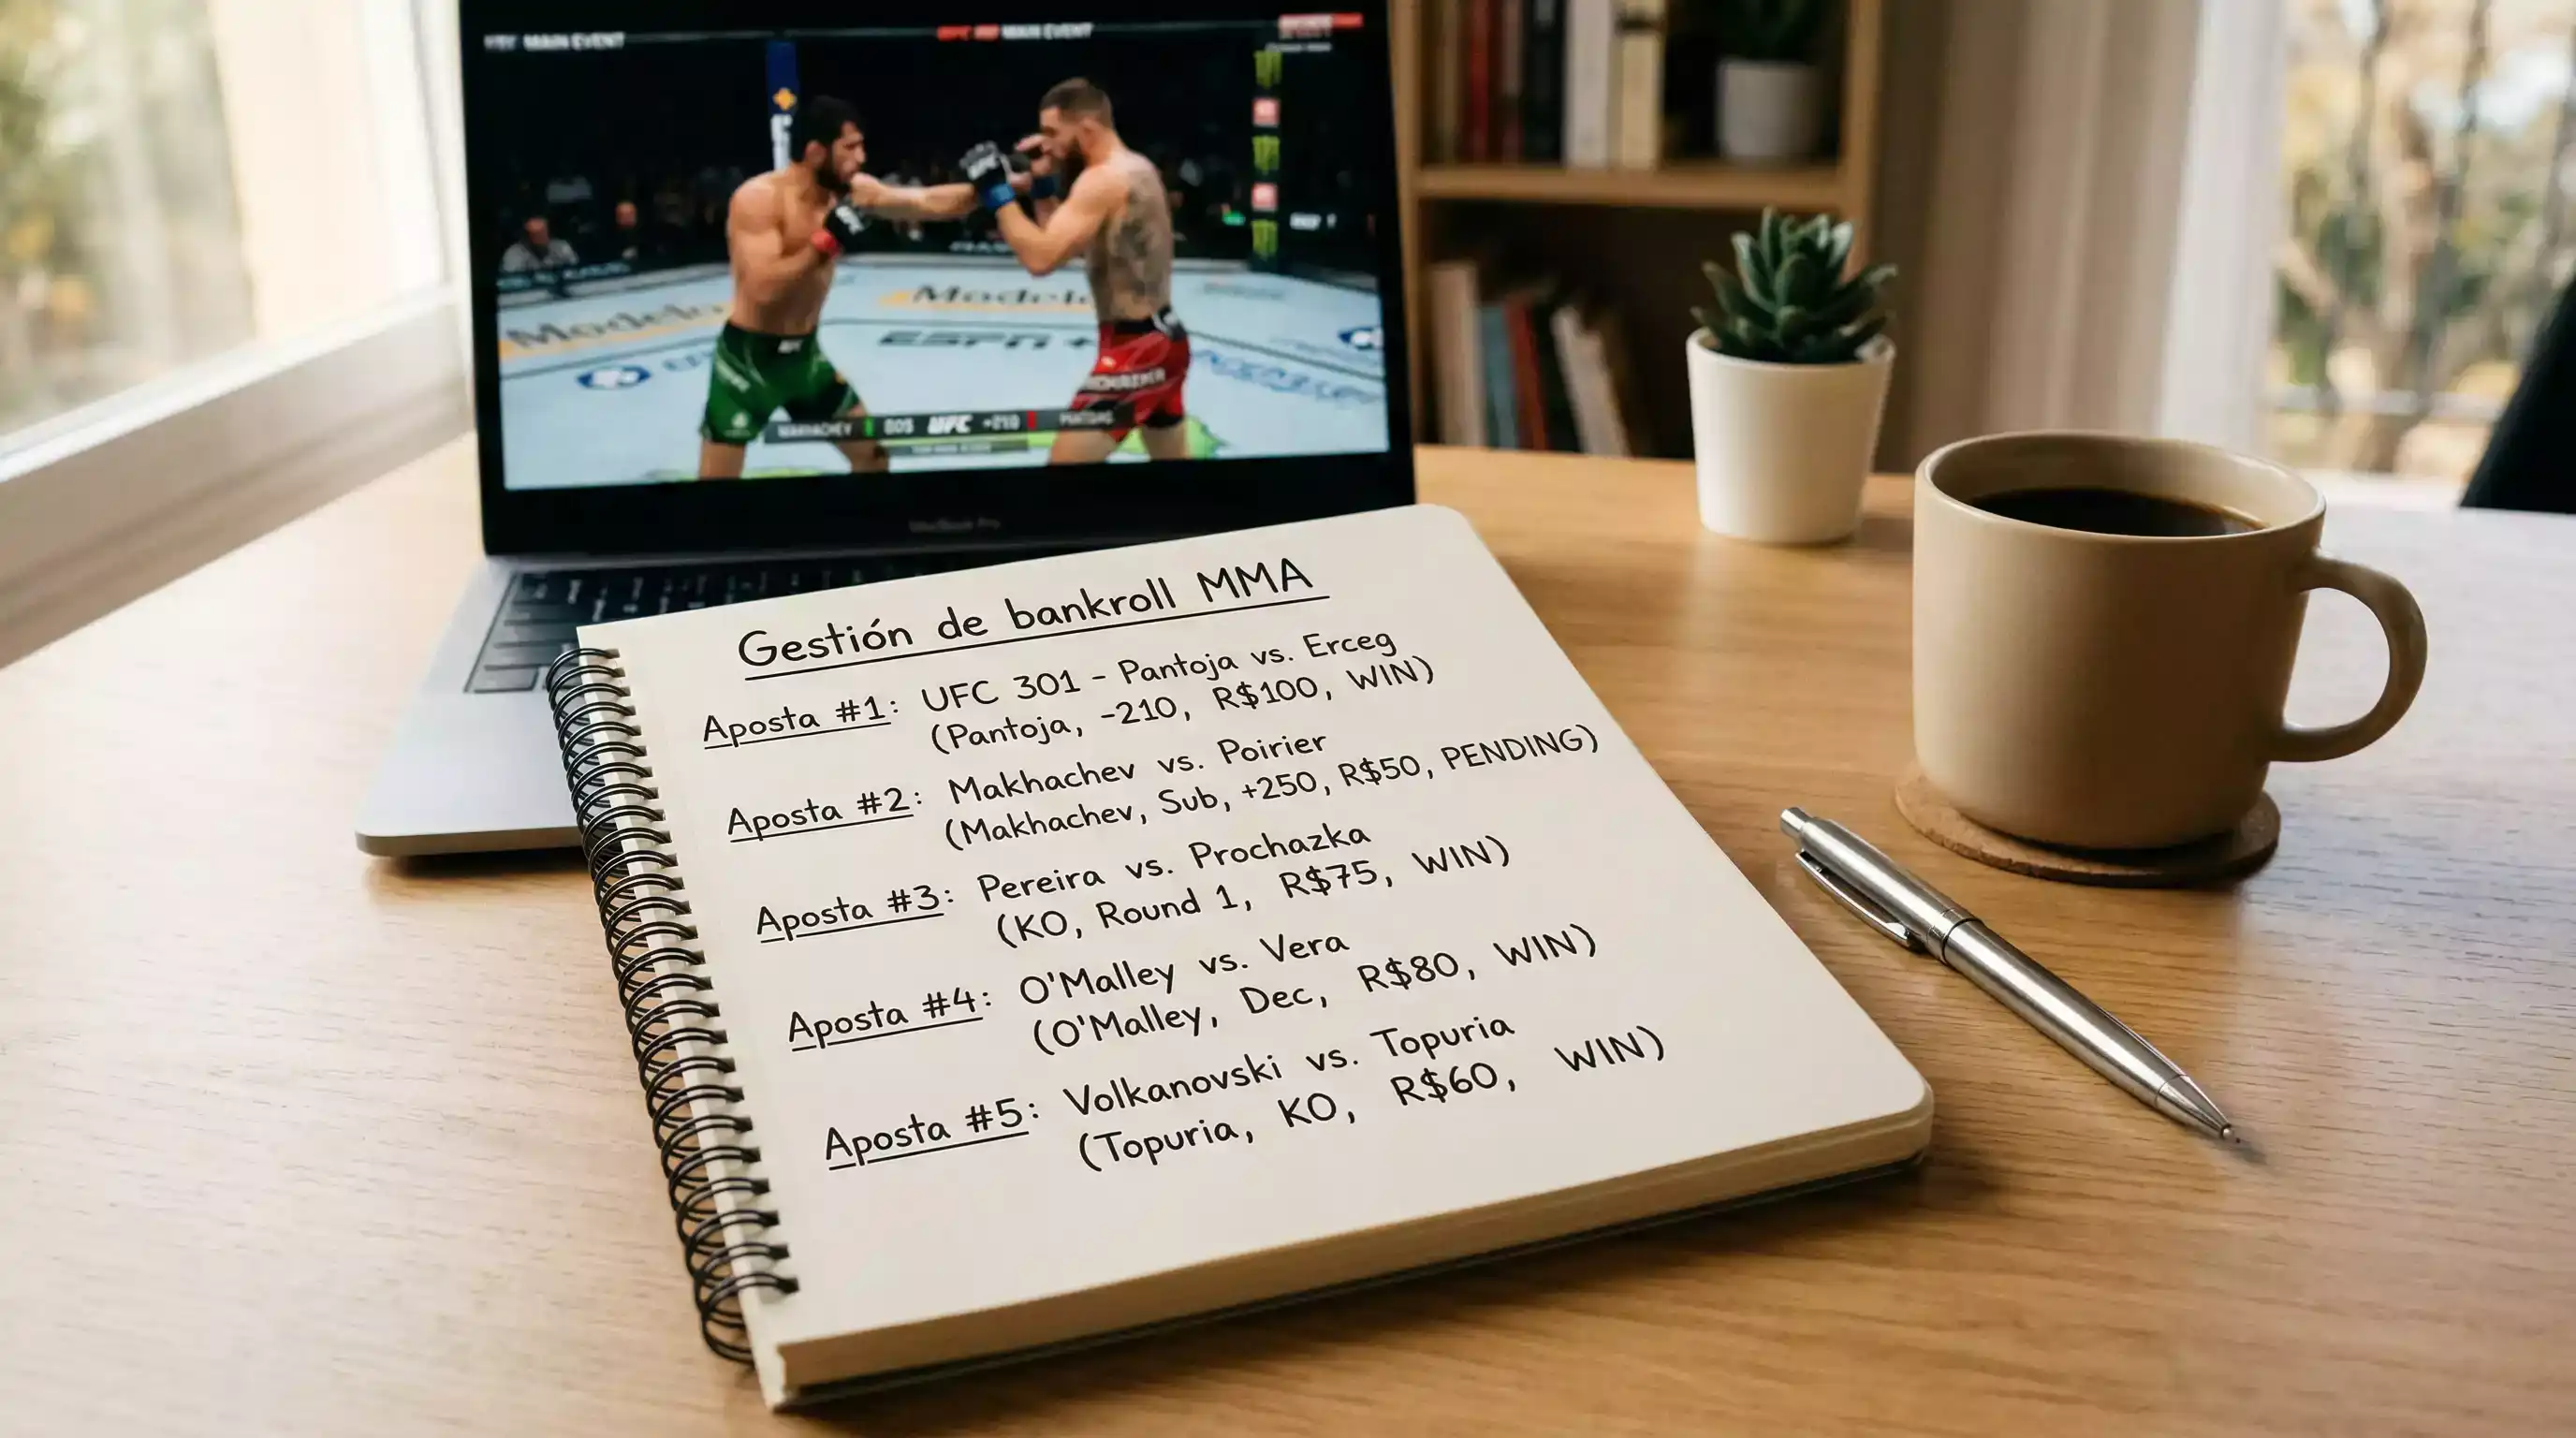 MAIN EVENT
MAIN EVENT
Modelo
Modelo
ESPN+
UFC +210
MacBook Pro
Gestión de bankroll MMA
Aposta #1: UFC 301 - Pantoja vs. Erceg
(Pantoja, -210, R$100, WIN)
Aposta #2: Makhachev vs. Poirier
(Makhachev, Sub, +250, R$50, PENDING)
Aposta #3: Pereira vs. Prochazka
(KO, Round 1, R$75, WIN)
Aposta #4: O'Malley vs. Vera
(O'Malley, Dec, R$80, WIN)
Aposta #5: Volkanovski vs. Topuria
(Topuria, KO, R$60, WIN)